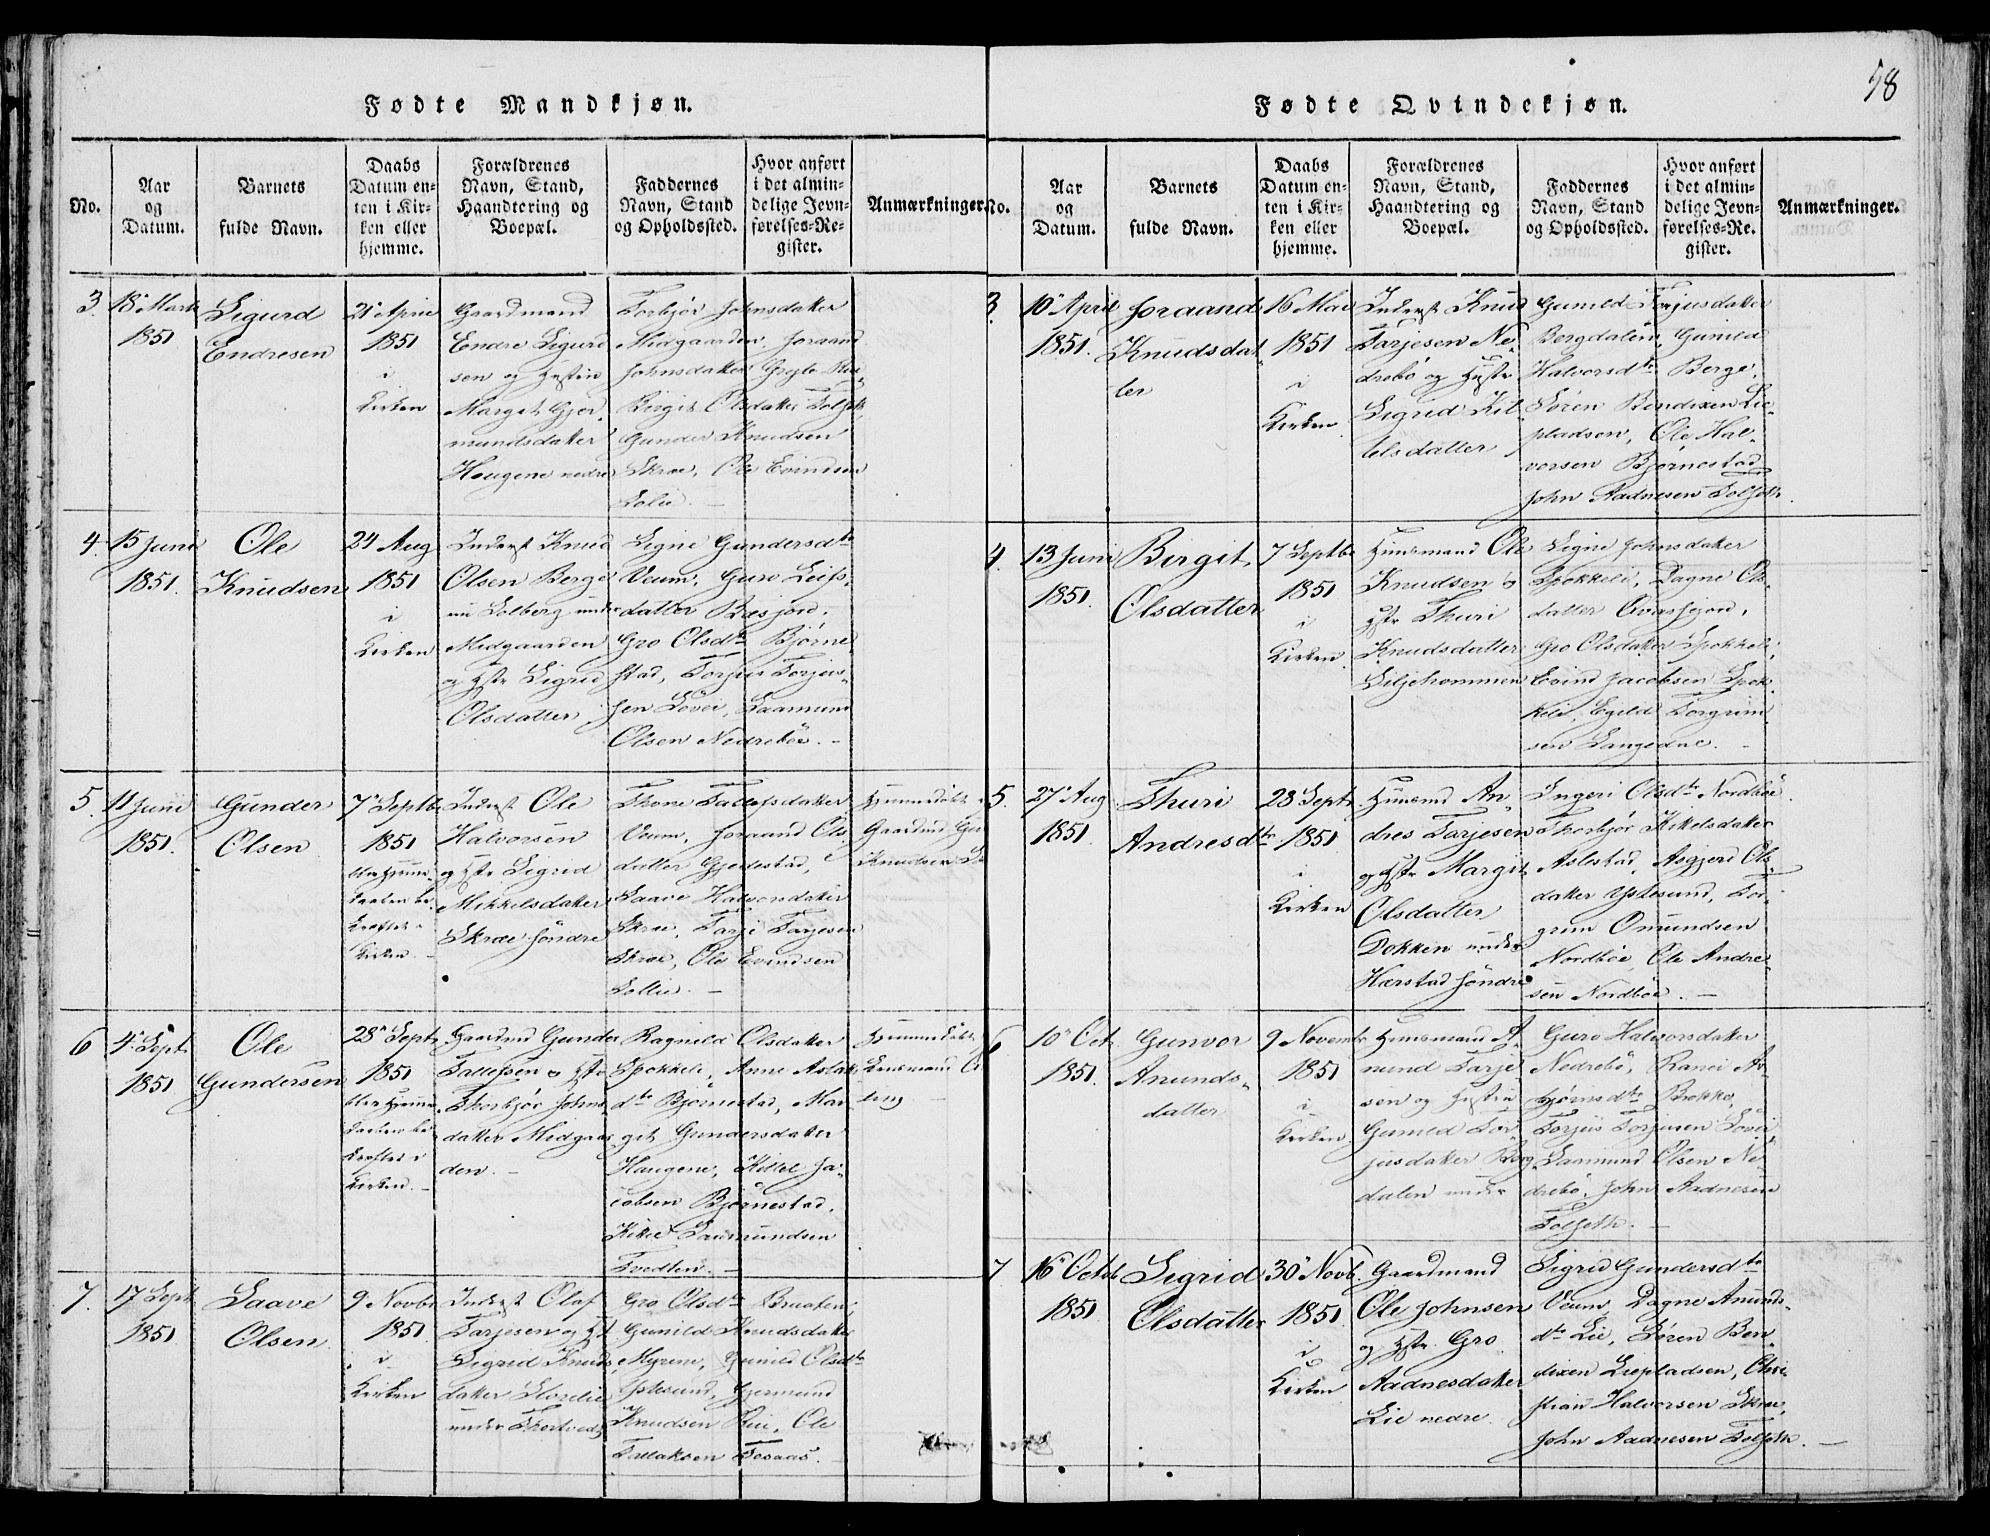 58
Fødte Mandkjøn.
No.
Aar
og
Datum.
Barnets
fulde Navn.
Daabs
Datum en-
ten i Kir-
ken eller
hjemme.
Forældrenes
Navn, Stand,
Haandtering og
Boepæl.
Faddernes
Navn, Stand
og Opholdssted.
Hvor anført
i det almin-
delige Jevn-
førelses-Re-
gister.
Anmærkninger
3.
18 Marts
1851
Sigurd
Endresen
21 April
1851
i
Kirken
Gaardmand
Endre Sigurd
sen og Hustru
Margit Gjer
mundsdatter
Haugene nedre
Torbjør Johnsdatter
Midgaarden, Joraand
Johnsdatter
Birgit Olsdatter Tolseth
Gunder Knudsen
Skræ, Ole Evindsen
Lolie.
4.
15 Juni
1851.
Ole
Knudsen
24 Aug
1851
i
Kirken
Inderst Knud
Olsen Berge
under
Midgaarden
og Hstr Sigrid
Olsdatter
Signe Gundersdtr
Veum, Guro Leifs-
datter
Gro Olsdtr Bjørne
stad, Torjus Torjus-
sen Løver, Saamund
Olsen Nedrebøe.
5.
11 Juni
1851.
Gunder
Olsen
7 Septbr
1851
Kirken
Inderst Ole
Halvorsen
og Hstr Sigrid
Mikkelsdatter
Skræ søndre
Tone Tallefsdatter
Veum, Joraand Ols
datter Gjedestad,
Saave Halvorsdatter
Skræ, Tarje Tarjesen
Skræ, Ole Evindsen
Lollie.
Hjemmedøbt
Gaardmd
Knudsen
6
4 Sept
1851
Ole
Gundersen
28 Sept
1851
Kirken.
Gaardmd Gunder
Tallefsen og Hstr
Thorbjør Johns
datter Midgaar
den.
Ragnild Olsdatter
Spokkeli, Anne Aslak
dtr Bjørnestad, Mar
git Gundersdatter
Haugene, Kittel Ja-
cobsen Bjørnestad,
Kittil Saamundsen
Tvedten.
Hjemmedøbt
7.
17 Sept
1851
Saave
Olsen
9 Novbr
1851
i
Kirken
Inderst Olaf
Tarjesen og Hst
Sigrid Knuds
datter Storelie
under Thortvedt
Gro Olsdtr Bruaten,
Gunild Knudsdatter
Myrene, Gunild Olsdtr
Ystesund, Gjermund
Knudsen Rui, Ole
Tallaksen Tosaas.
Fødte Qvindekjøn.
No.
Aar
og
Datum.
Barnets
fulde Navn.
Daabs
Datum en-
ten i Kir-
ken eller
hjemme.
Forældrenes
Navn, Stand,
Haandtering og
Boepæl.
Faddernes
Navn, Stand
og Opholdssted.
Hvor anført
i det almin-
delige Jevn-
førelses-Re-
gister.
Anmærkninger.
3.
10 April
1851.
Joraand
Knudsdat
ter
16 Mai
1851
i
Kirken
Inderst Knud
Tarjesen Ne-
drebø og Hstr
Sigrid Kit
telsdatter
Gunild Torjusdatter
Bergdalen, Gunild
Halvorsdtr Berge,
Søren Bendixen Lie-
pladsen, Ole Hal-
vorsen Bjørnestad
John Aadnesen Tolseth.
4.
13 Juni
1851.
Birgit
Olsdatter
7 Septbr
1851
i
Kirken
Huusmand Ole
Knudsen og
Hstr Thuri
Knudsdatter
Siljehommen
Signe Johnsdatter
Spokkeli, Dagne Ols-
datter
Gro Olsdatter Spokkeli,
Evind Jacobsen Spok
keli, Egeld Torgrim
sen Langedac.
5.
27 Aug
1851.
Thuri
Andresdtr
28 Septr.
1851
i
Kirken
Huusmd An-
dres Tarjesen
og Hstr Margit
Olsdatter
Dokken under
Harstad søndre
Ingeri Olsdtr Nordbøe
Thorbjør Kittelsdatter
Aslestad, Asgjerd Ols
datter Ystesund, Tor
grim Omundsen
Nordbøe, Ole Andre
sen Nordbøe.
6
10 Oct.
1851.
Gunvor
Anunds-
datter
9 Novembr
1851
i
Kirken
Huusmand A-
nund Tarje
sen og Hustru
Gunild Tor
jusdatter Berg
dalen under
Guro Halvorsdatter
Nedrebø, Ranei As-
bjørnsdtr Brokke,
Torjus Torjusen Løver
Saamund Olsen Ne-
drebø, John Aadnesen
Tolseth.
7
16 Octob
1851
Sigrid
Olsdatter
30 Novb.
1851
i
Kirken
Gaardmand
Ole Johnsen
og Hstr. Gro
Aadnesdatter
Lie nedre.
Sigrid Gundersdtr
Veum, Dagne Anunds-
dtr Lie, Søren Ben
dixen Liepladsen, Chri
stian Halvorsen Skræ,
John Aadnesen Tolseth.